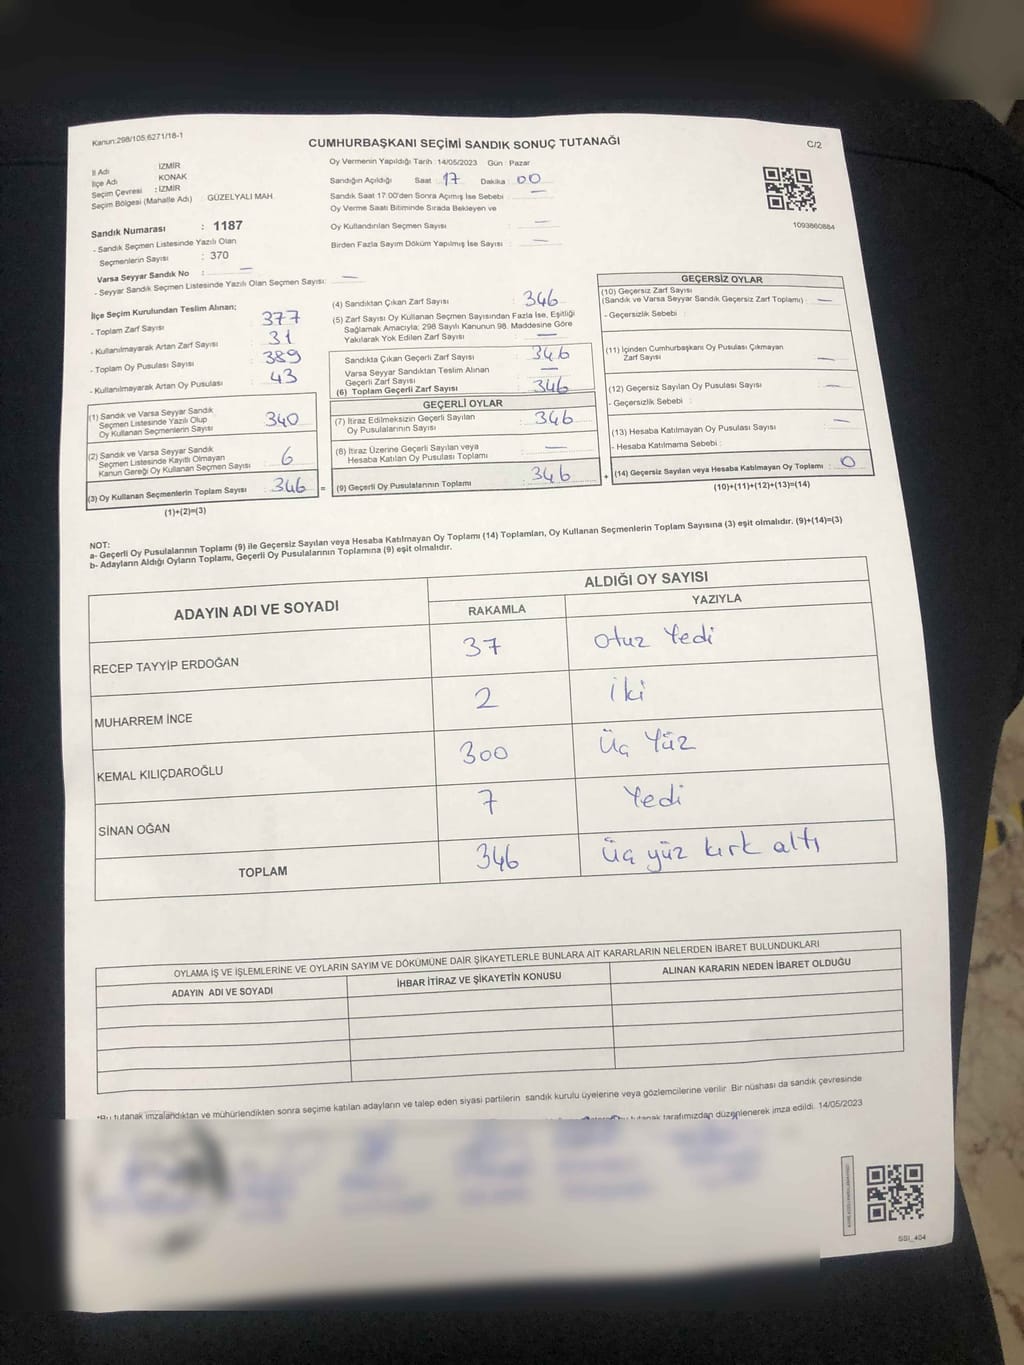 Kanun:298/105,6271/18-1
CUMHURBAŞKANI SEÇİMİ SANDIK SONUÇ TUTANAĞI
C/2
İl Adı İZMİR
İlçe Adı KONAK
Seçim Çevresi : İZMİR
Seçim Bölgesi (Mahalle Adı) : GÜZELYALI MAH.
Oy Vermenin Yapıldığı Tarih : 14/05/2023 Gün : Pazar
Sandığın Açıldığı Saat : 17 Dakika : 00
Sandık Saat 17:00'den Sonra Açımış İse Sebebi : —
Oy Verme Saati Bitiminde Sırada Bekleyen ve
Oy Kullandırılan Seçmen Sayısı : —
Birden Fazla Sayım Döküm Yapılmış İse Sayısı : —
1093860884
Sandık Numarası : 1187
- Sandık Seçmen Listesinde Yazılı Olan
Seçmenlerin Sayısı : 370
Varsa Seyyar Sandık No : —
- Seyyar Sandık Seçmen Listesinde Yazılı Olan Seçmen Sayısı: —
İlçe Seçim Kurulundan Teslim Alınan;
- Toplam Zarf Sayısı : 377
- Kullanılmayarak Artan Zarf Sayısı : 31
- Toplam Oy Pusulası Sayısı : 389
- Kullanılmayarak Artan Oy Pusulası : 43
(1) Sandık ve Varsa Seyyar Sandık
Seçmen Listesinde Yazılı Olup
Oy Kullanan Seçmenlerin Sayısı : 340
(2) Sandık ve Varsa Seyyar Sandık
Seçmen Listesinde Kayıtlı Olmayan
Kanun Gereği Oy Kullanan Seçmen Sayısı : 6
(3) Oy Kullanan Seçmenlerin Toplam Sayısı : 346 =
(1)+(2)=(3)
(4) Sandıktan Çıkan Zarf Sayısı : 346
(5) Zarf Sayısı Oy Kullanan Seçmen Sayısından Fazla İse, Eşitliği
Sağlamak Amacıyla; 298 Sayılı Kanunun 98. Maddesine Göre
Yakılarak Yok Edilen Zarf Sayısı : —
Sandıkta Çıkan Geçerli Zarf Sayısı : 346
Varsa Seyyar Sandıktan Teslim Alınan
Geçerli Zarf Sayısı : —
(6) Toplam Geçerli Zarf Sayısı : 346
GEÇERLİ OYLAR
(7) İtiraz Edilmeksizin Geçerli Sayılan
Oy Pusulalarının Sayısı : 346
(8) İtiraz Üzerine Geçerli Sayılan veya
Hesaba Katılan Oy Pusulası Toplamı : —
(9) Geçerli Oy Pusulalarının Toplamı : 346 +
GEÇERSİZ OYLAR
(10) Geçersiz Zarf Sayısı
(Sandık ve Varsa Seyyar Sandık Geçersiz Zarf Toplamı) : —
- Geçersizlik Sebebi :
(11) İçinden Cumhurbaşkanı Oy Pusulası Çıkmayan
Zarf Sayısı : —
(12) Geçersiz Sayılan Oy Pusulası Sayısı : —
- Geçersizlik Sebebi :
(13) Hesaba Katılmayan Oy Pusulası Sayısı : —
- Hesaba Katılmama Sebebi :
(14) Geçersiz Sayılan veya Hesaba Katılmayan Oy Toplamı : 0
(10)+(11)+(12)+(13)=(14)
NOT:
a- Geçerli Oy Pusulalarının Toplamı (9) ile Geçersiz Sayılan veya Hesaba Katılmayan Oy Toplamı (14) Toplamları, Oy Kullanan Seçmenlerin Toplam Sayısına (3) eşit olmalıdır. (9)+(14)=(3)
b- Adayların Aldığı Oyların Toplamı, Geçerli Oy Pusulalarının Toplamına (9) eşit olmalıdır.
ADAYIN ADI VE SOYADI
ALDIĞI OY SAYISI
RAKAMLA YAZIYLA
RECEP TAYYİP ERDOĞAN 37 Otuz Yedi
MUHARREM İNCE 2 İki
KEMAL KILIÇDAROĞLU 300 Üç Yüz
SİNAN OĞAN 7 Yedi
TOPLAM 346 üç yüz kırk altı
OYLAMA İŞ VE İŞLEMLERİNE VE OYLARIN SAYIM VE DÖKÜMÜNE DAİR ŞİKAYETLERLE BUNLARA AİT KARARLARIN NELERDEN İBARET BULUNDUKLARI
ADAYIN ADI VE SOYADI İHBAR İTİRAZ VE ŞİKAYETİN KONUSU ALINAN KARARIN NEDEN İBARET OLDUĞU
*Bu tutanak imzalandıktan ve mühürlendikten sonra seçime katılan adayların ve talep eden siyasi partilerin sandık kurulu üyelerine veya gözlemcilerine verilir Bir nüshası da sandık çevresinde
tutanak tarafımızdan düzenlenerek imza edildi. 14/05/2023
SSI_404